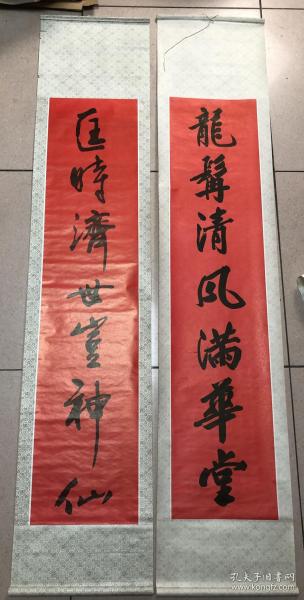 龍髯清风满華堂
匡時濟世豈神仙
孔夫子旧书网
www.kongfz.com